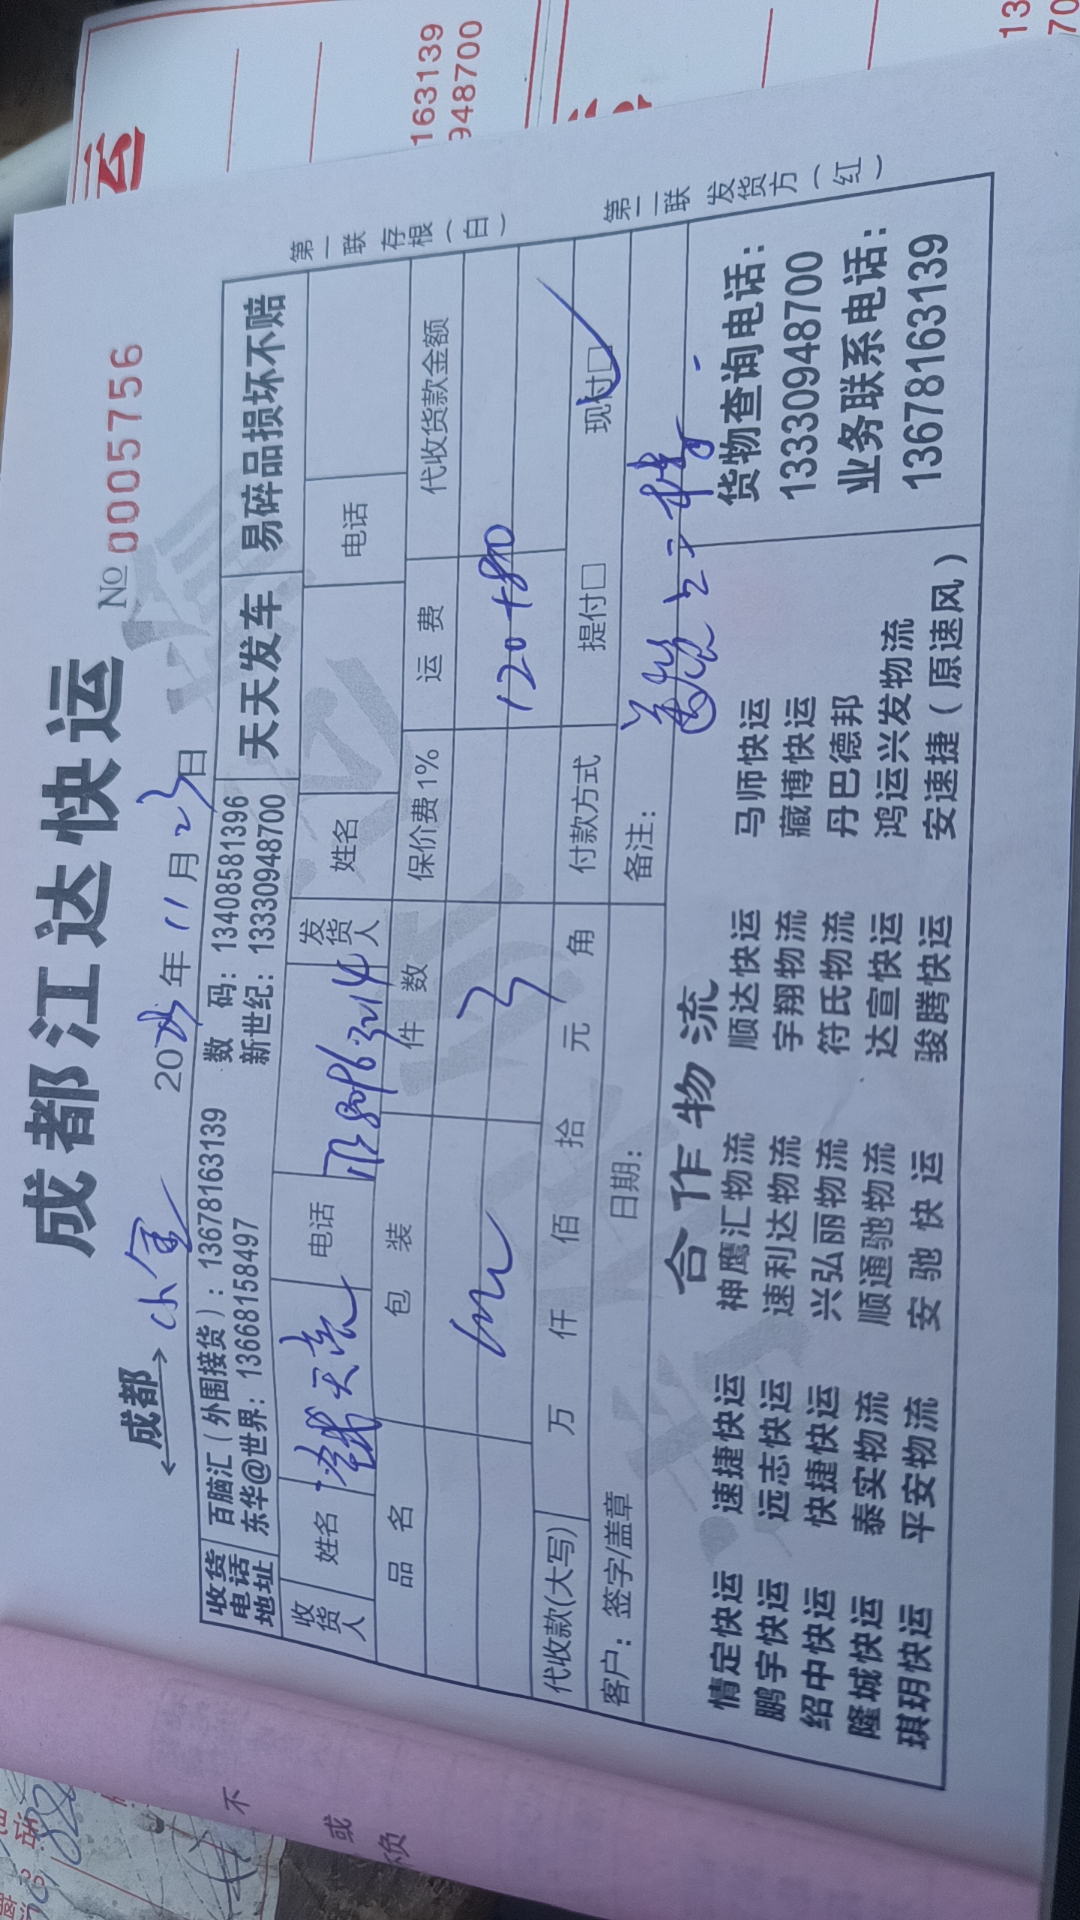 成都江达快运
№ 0005756
成都
20 年11月23日
收货电话地址
百脑汇（外围接货）: 13678163139
数 码: 13408581396
东华@世界: 13668158497
新世纪: 13330948700
天天发车
易碎品损坏不赔
收货人
姓名
电话
发货人
姓名
电话
品 名
包 装
件 数
保价费1%
运 费
代收货款金额
3
120+800
代收款(大写)
万 仟 佰 拾 元 角
付款方式
提付□
现付□
客户: 签字/盖章
日期:
备注:
合作物流
情定快运 速捷快运 神鹰汇物流 顺达快运 马帅快运
鹏宇快运 远志快运 速利达物流 宇翔物流 藏博快运
绍中快运 快捷快运 兴弘丽物流 符氏物流 丹巴德邦
隆城快运 泰实物流 顺通驰物流 达宣快运 鸿运兴发物流
琪玥快运 平安物流 安驰快运 骏腾快运 安速捷（原速风）
货物查询电话:
13330948700
业务联系电话:
13678163139
第一联 存根（白）
第二联 发货方（红）
163139
948700
云
不
或
负